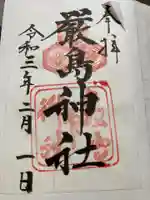 奉拝
嚴島神社
令和三年二月一日